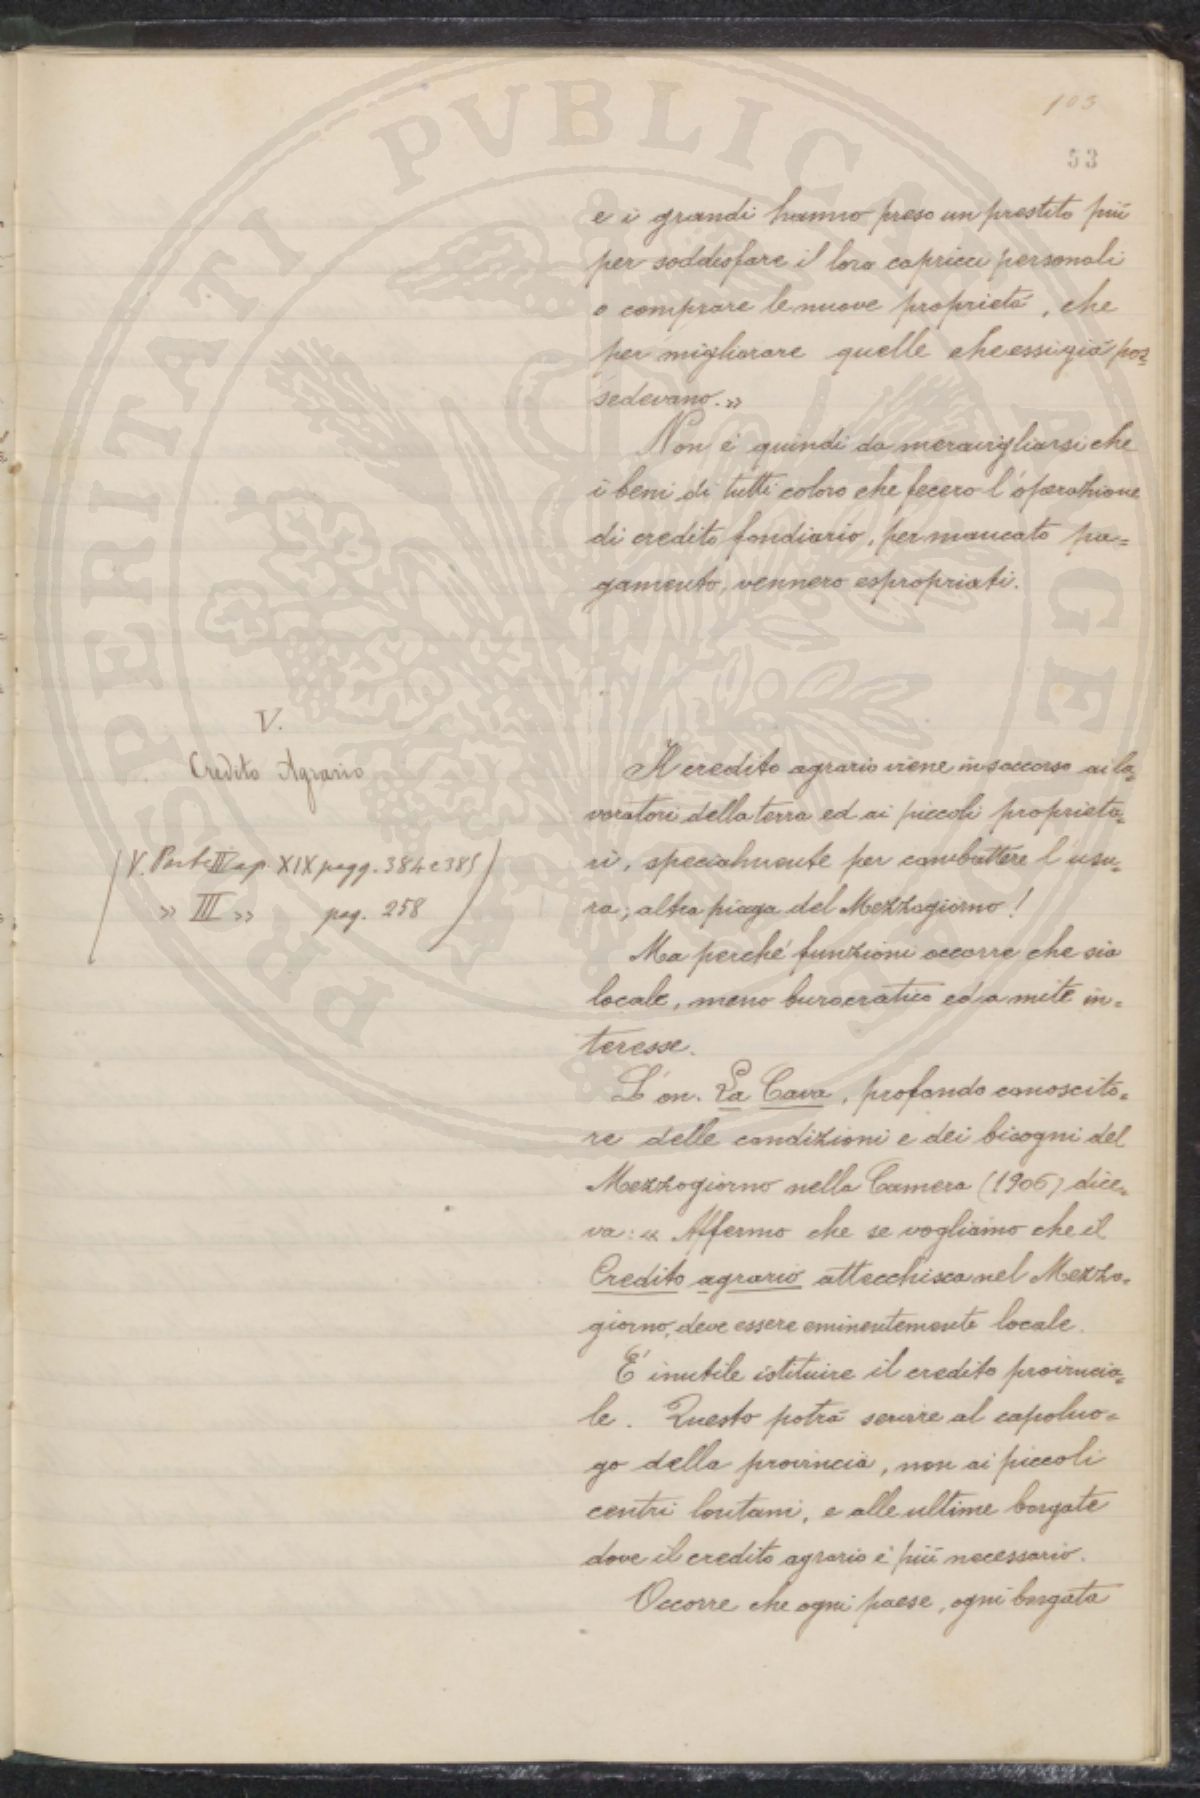 103
53
e i grandi hanno preso un prestito più
per soddisfare il loro capricci personali
o comprare le nuove proprietà, che
per migliorare quelle che essi già pos=
sedevano.»
Non è quindi da meravigliarsi che
i beni di tutti coloro che fecero l'operazione
di credito fondiario, per mancato pa=
gamento, vennero espropriati.
V.
Credito Agrario
(V. Parte II cap. XIX pagg. 384 e 385
» III » pag. 258)
Il credito agrario viene in soccorso ai la=
voratori della terra ed ai piccoli proprieta=
ri, specialmente per combattere l'usu=
ra; altra piaga del Mezzogiorno!
Ma perché funzioni occorre che sia
locale, meno burocratico ed a mite in=
teresse.
L'on. La Cava, profondo conoscito=
re delle condizioni e dei bisogni del
Mezzogiorno nella Camera (1906) dice=
va: « Affermo che se vogliamo che il
Credito agrario attecchisca nel Mezzo=
giorno, deve essere eminentemente locale.
E' inutile istituire il credito provincia=
le. Questo potrà servire al capoluo=
go della provincia, non ai piccoli
centri lontani, e alle ultime borgate
dove il credito agrario è più necessario.
Occorre che ogni paese, ogni borgata
PROSPERITATI PVBLICAE AVGENDAE